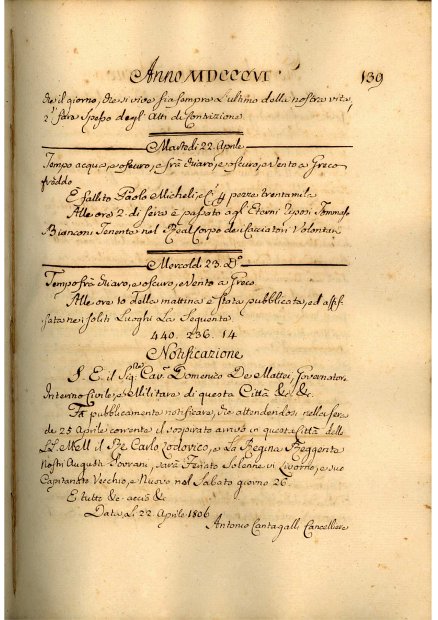 Anno MDCCCVI
139
che il giorno, che si vive sia sempre l'ultimo della nostra vita,
2.° fare spesso degl'Atti di Contrizione
Martedì 22. Aprile
Tempo acqua, e oscuro, e frà chiaro, e oscuro, e Vento a Greco
freddo
E fallito Paolo Micheli, e C.i pezze trentamila
Alle ore 2. di sera è passato agl'Eterni riposi Tommaso
Bianconi Tenente nel Real Corpo dei Cacciatori Volontari
Mercoldì 23. D.o
Tempo frà chiaro, e oscuro, e Vento a Greco
Alle ore 10 della mattina è stata pubblicata, ed affis-
sata nei soliti Luoghi La Seguente
440. 236. 14
Notificazione
S. E. il Sig.re Cav.r Domenico De Mattei, Governator
Interino Civile, e Militare di questa Città &c. &c.
Fà pubblicamente notificare, che attendendosi nella sera
de 25 Aprile corrente il sospirato arrivo in questa Città delle
LL. MM. il Rè Carlo Lodovico, e La Regina Reggente
Nostri Augusti Sovrani, sarà Feriato Solenne in Livorno, e suo
Capitanato Vecchio, e Nuovo nel Sabato giorno 26.
E tutto &c. acciò &c.
Data Li 22. Aprile 1806
Antonio Cantagalli Cancelliere